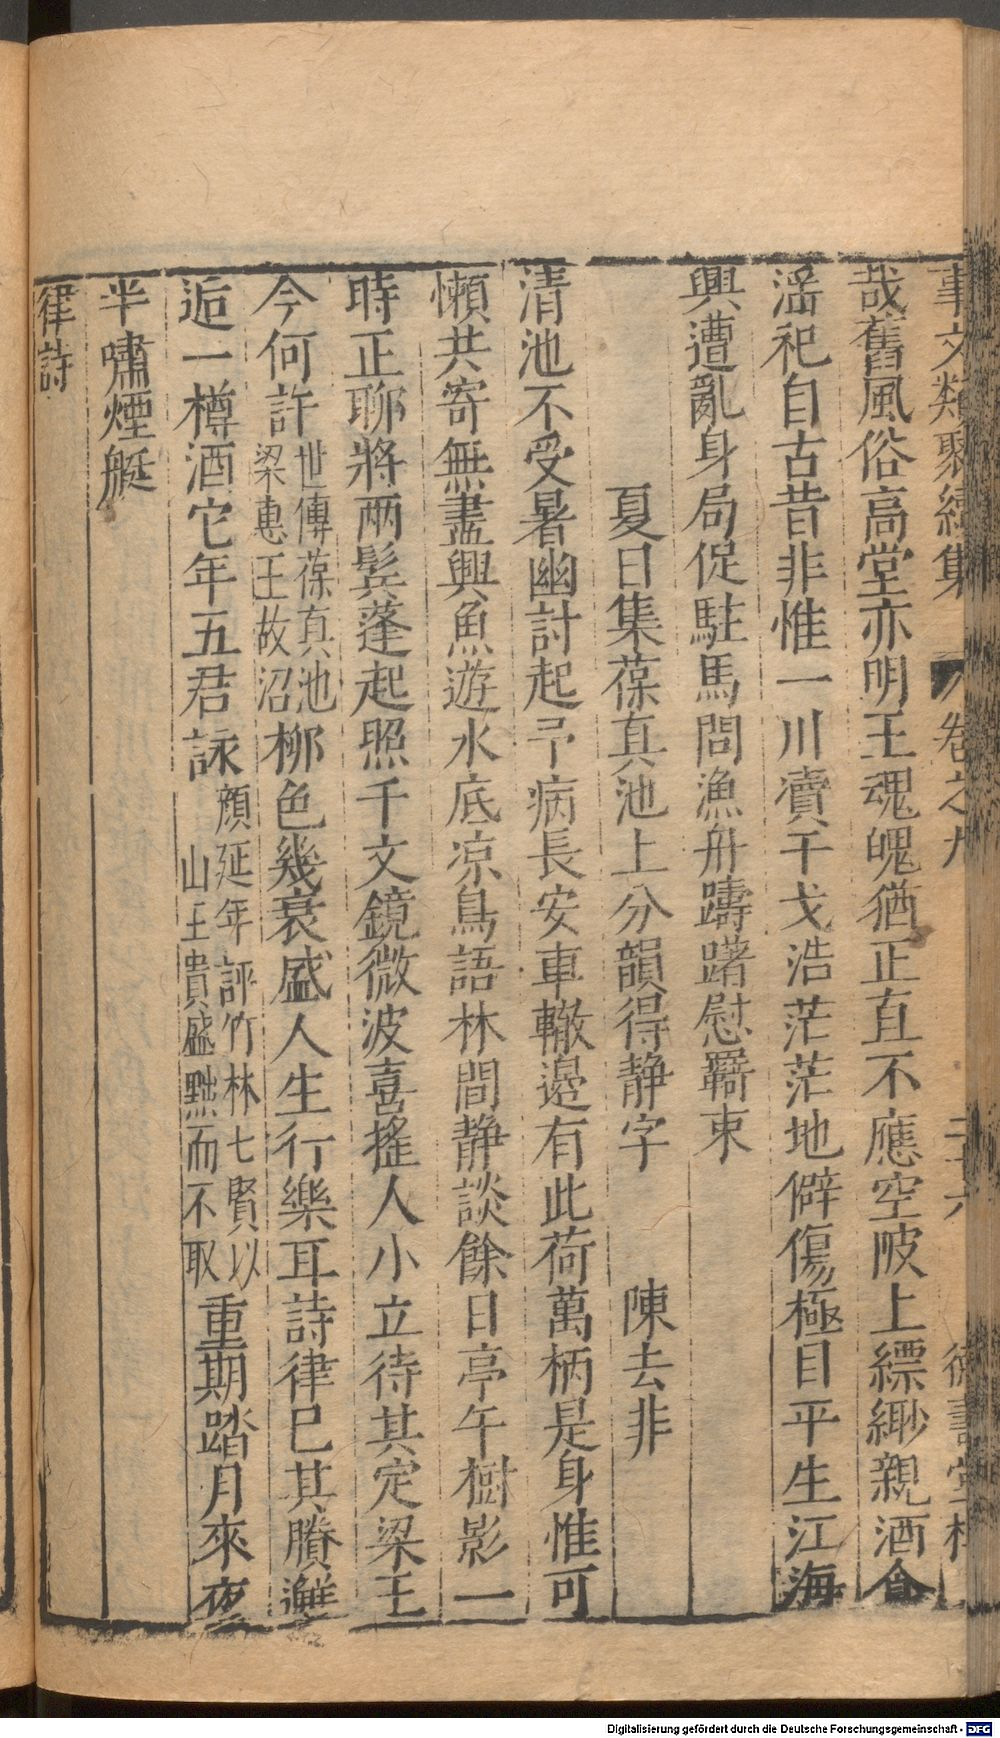 事文類聚續集 卷之九 二十六 德壽堂梓
哉舊風俗高堂亦明王魂魄猶正直不應空陂上縹緲親酒食
滛祀自古昔非惟一川瀆干戈浩茫茫地僻傷極目平生江海
興遭亂身局促駐馬問漁舟躊躇慰羈束
夏日集葆真池上分韻得静字 陳去非
清池不受暑幽討起予病長安車轍邉有此荷萬柄是身惟可
懶共寄無盡興魚遊水底凉鳥語林間静談餘日亭午樹影一
時正聊將兩鬂蓬起照千文鏡微波喜揺人小立待其定梁王
今何許世傳葆真池梁惠王故沼柳色幾衰盛人生行樂耳詩律已其賸邂
逅一樽酒它年五君詠顔延年評竹林七賢以山王貴盛黜而不取重期踏月來夜
半嘯煙艇
律詩
Digitalisierung gefördert durch die Deutsche Forschungsgemeinschaft - DFG